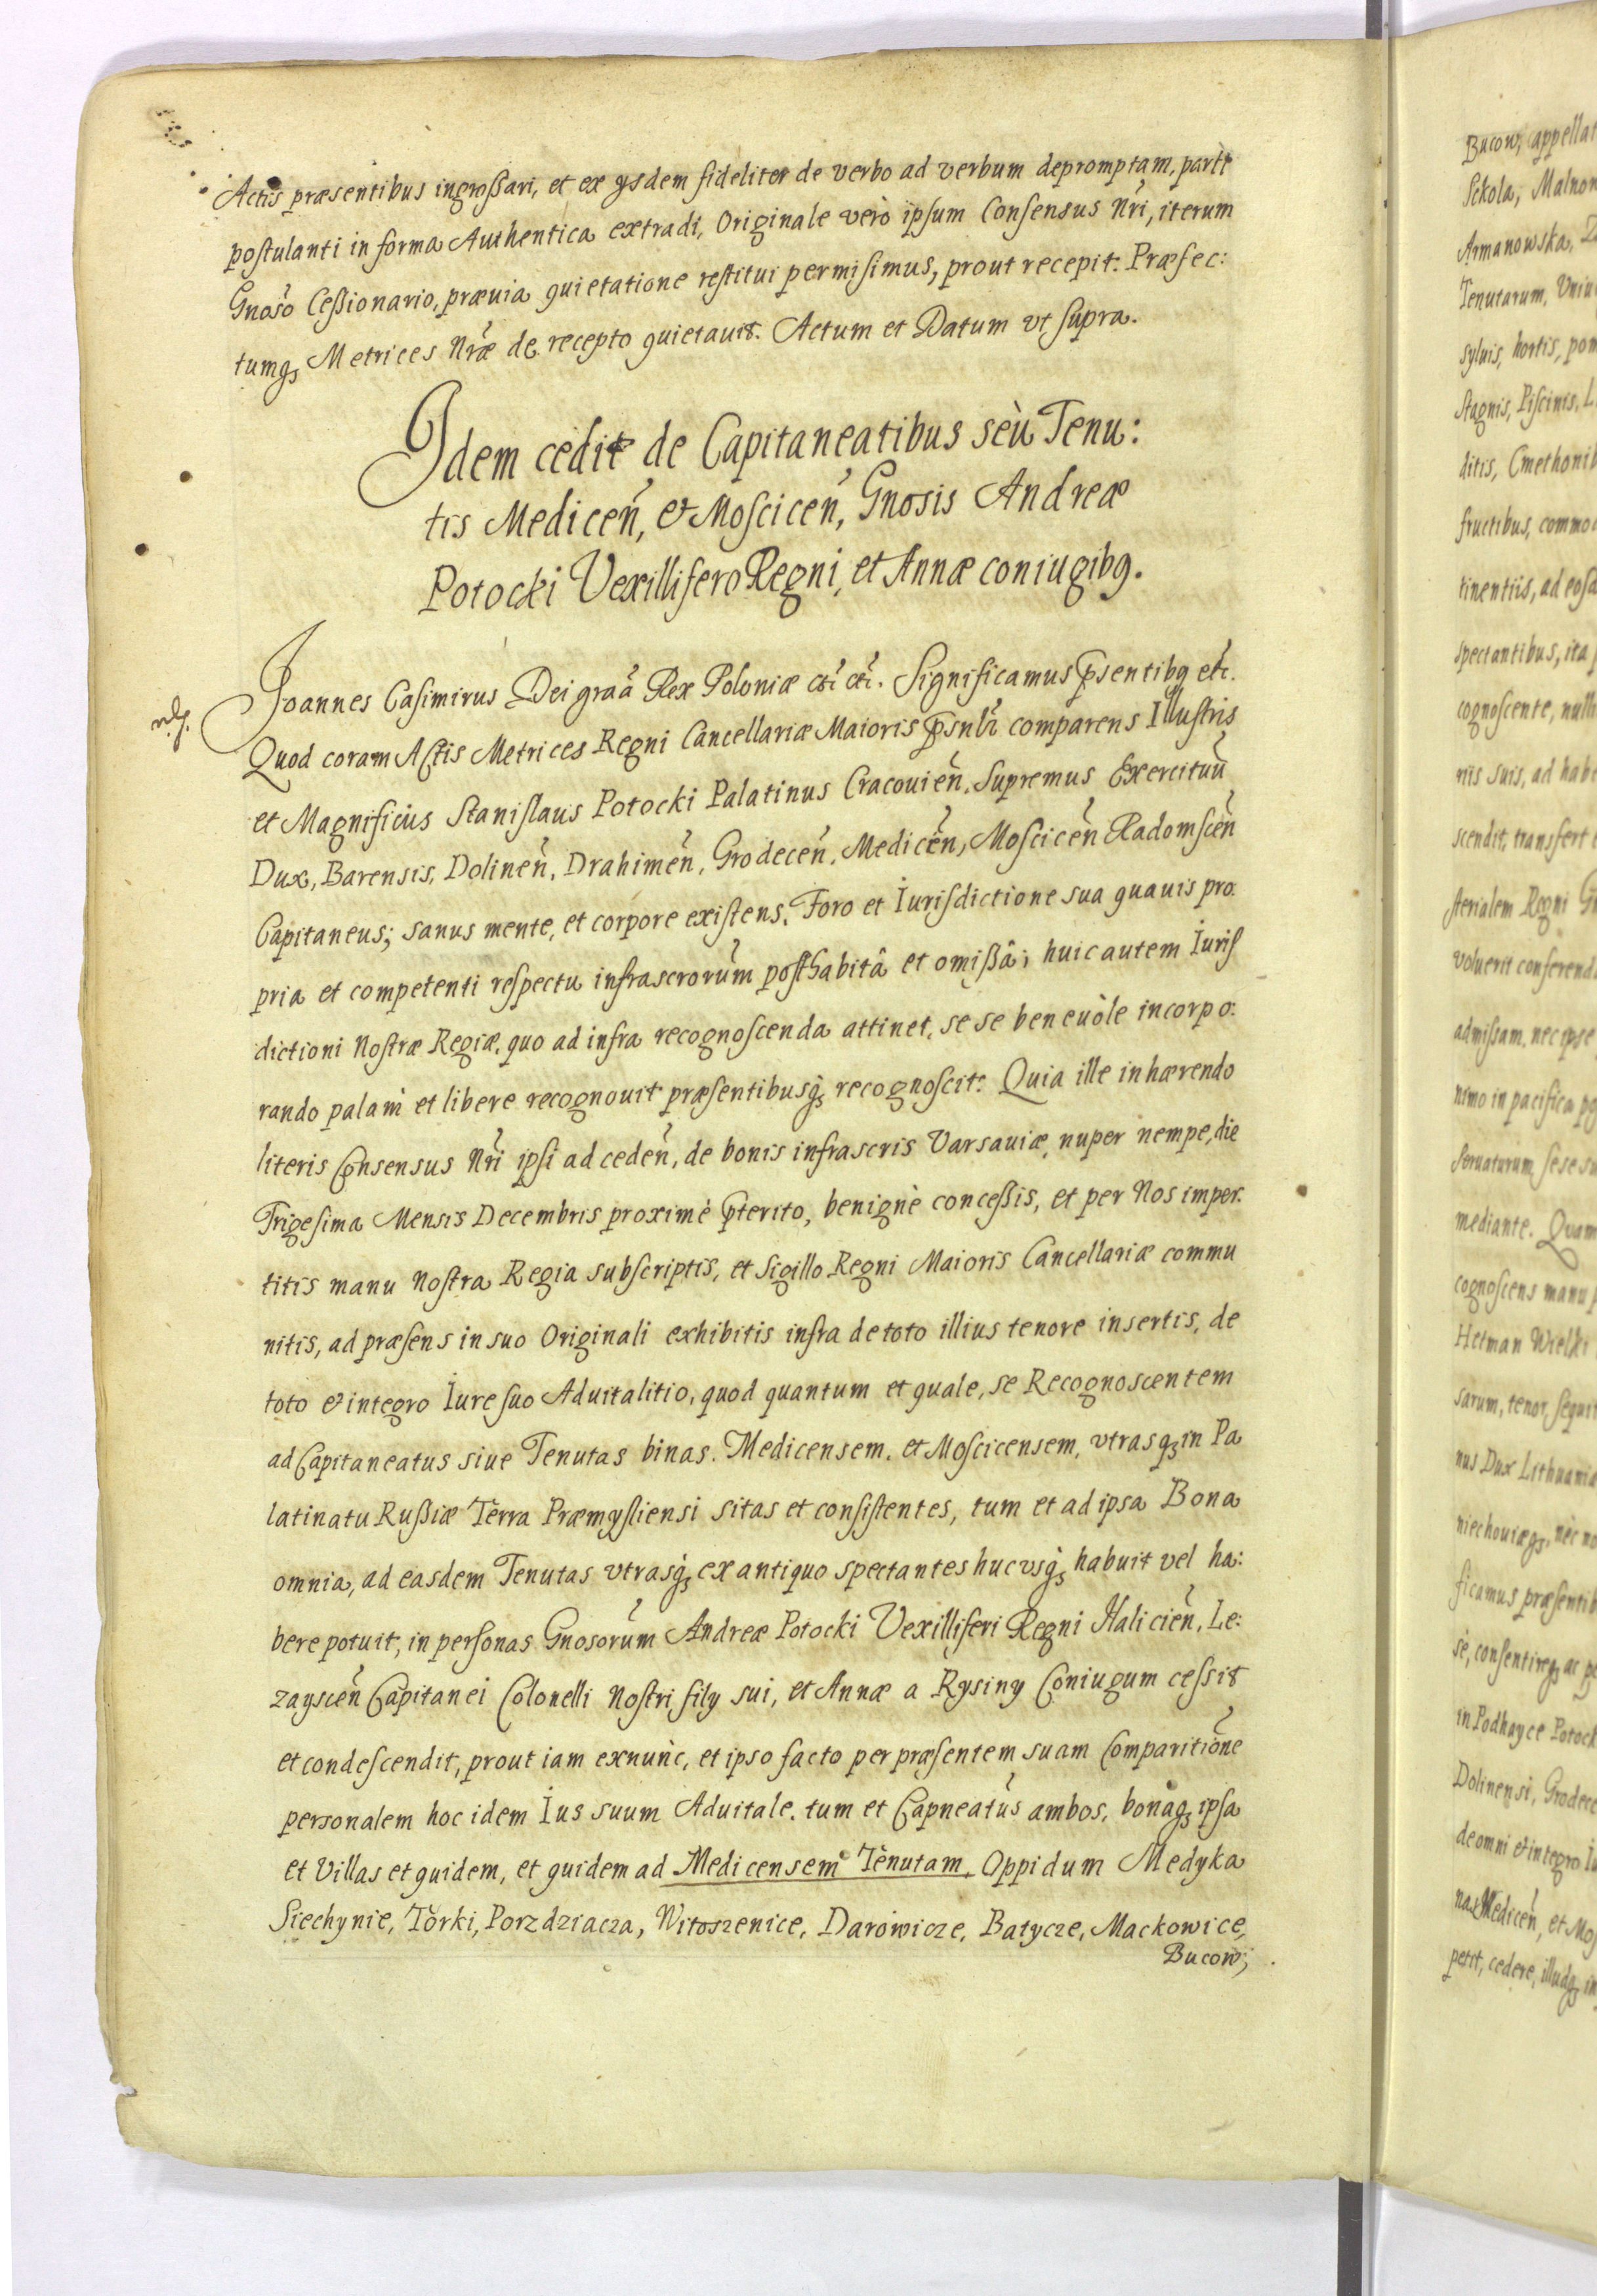 Actis præsentibus ingroßari, et ex ysdem fideliter de verbo ad verbum depromptam, parti
postulanti in forma Authentica extradi, Originale verò ipsum Consensus Nri, iterum
Gnoso Ceßionario, præuia quietatione restitui permisimus, prout recepit. Præfec:
tumq; Metrices Nræ de recepto quietauit. Actum et Datum vt supra.
Idem cedit de Capitaneatibus seù Tenu:
tis Medicen, et Moscicen, Gnosis Andreæ
Potocki Vexillifero Regni, et Annæ coniugibq.
Joannes Casimirus Dei graa Rex Poloniæ etc etc. Significamus psentibq etc.
Quod coram Actis Metrices Regni Cancellariæ Maioris psnlr comparens Illustris
et Magnificus Stanislaus Potocki Palatinus Cracouien. Supremus Exercituu
Dux, Barensis, Dolinen, Drahimen, Grodecen, Medicen, Moscicen Radomscen
Capitaneus; sanus mente, et corpore existens, Foro et Iurisdictione sua quauis pro:
pria et competenti respectu infrascrorum posthabitâ et omißâ; huic autem Iuris
dictioni Nostræ Regiæ, quo ad infra recognoscenda attinet, se se beneuòle incorpo:
rando palam et libere recognouit præsentibusq; recognoscit: Quia ille inhærendo
literis Consensus Nri ipsi ad ceden, de bonis infrascris Varsauiæ, nuper nempe, die
Trigesima Mensis Decembris proximè pterito, benignè conceßis, et per Nos imper:
titis manu Nostra Regia subscriptis, et Sigillo Regni Maioris Cancellariæ commu
nitis, ad præsens in suo Originali exhibitis infra de toto illius tenore insertis, de
toto et integro Iure suo Aduitalitio, quod quantum et quale, se Recognoscentem
ad Capitaneatus siue Tenutas binas. Medicensem, et Moscicensem, vtrasq; in Pa
latinatu Rußiæ Terra Præmysliensi sitas et consistentes, tum et ad ipsa Bona
omnia, ad easdem Tenutas vtrasq; ex antiquo spectantes hucvsq; habuit vel ha:
bere potuit, in personas Gnosorum Andreæ Potocki Vexilliferi Regni Halicien, Le:
zayscen Capitanei Colonelli Nostri fily sui, et Annæ a Rysiny Coniugum cessit
et condescendit, prout iam exnùnc, et ipso facto per præsentem suam Comparitione
personalem hoc idem Ius suum Aduitale, tum et Capneatus ambos, bonaq; ipsa
et Villas et quidem, et quidem ad Medicensem Tenutam, Oppidum Medyka
Siechynie, Torki, Porzdziacza, Witoszenice, Darowicze, Batycze, Mackowice,
Bucow,
Bucow, appellat
Sekola,
Armanowska,
Tenutarum,
syluis, hortis, pom
stagnis, Piscinis, L
ditis, Cmethonib
fructibus, commo
tinentiis, ad eosd
spectantibus, ita
cognoscente, null
riis suis, ad hab
scendit, transfert
sterialem Regni
voluerit conferend
admissam, nec ipse
nimo in pacifica
seruaturum sese su
mediante. Quam
cognoscens manu
Hetman Wielki
sarum, tenor sequit
nus Dux Lithuania
niechouiæq; nec no
ficamus præsentib
se, consentireq; ac
in Podhayce Potock
Dolinensi, Grodec
de omni et integro Iu
na Medicen, et Mos
petit, cedere, illudq; in